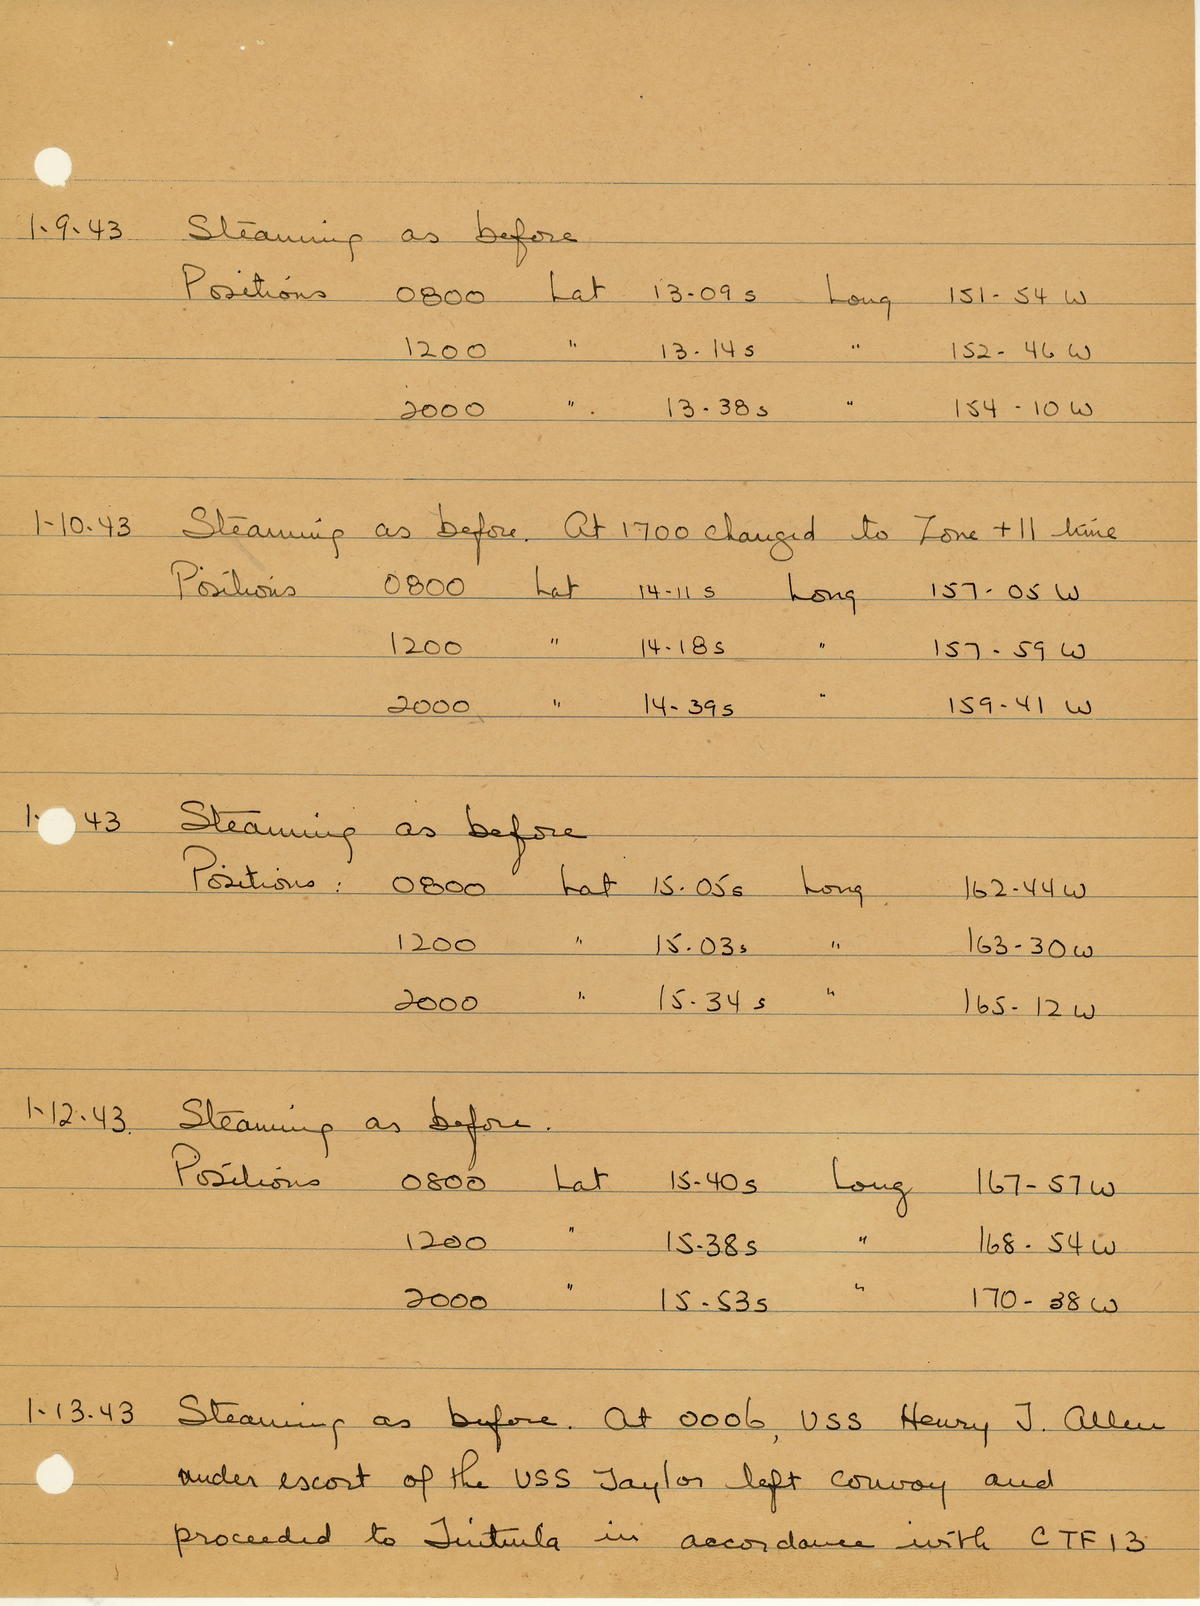 1-9-43 Steaming as before
Positions 0800 Lat 13-09s Long 151-54 W
1200 " 13-14s " 152-46 W
2000 ". 13-38s " 154-10 W
1-10-43 Steaming as before. At 1700 changed to Zone +11 time
Positions 0800 Lat 14-11s Long 157-05 W
1200 " 14-18s " 157-59 W
2000 " 14-39s " 159-41 W
1- 43 Steaming as before
Positions: 0800 Lat 15-05s Long 162-44 W
1200 " 15-03s " 163-30 W
2000 " 15-34s " 165-12 W
1-12-43. Steaming as before.
Positions 0800 Lat 15-40s Long 167-57 W
1200 " 15-38s " 168-54 W
2000 " 15-53s " 170-38 W
1-13-43 Steaming as before. At 0006, USS Henry T. Allen
under escort of the USS Taylor left convoy and
proceeded to in accordance with CTF 13